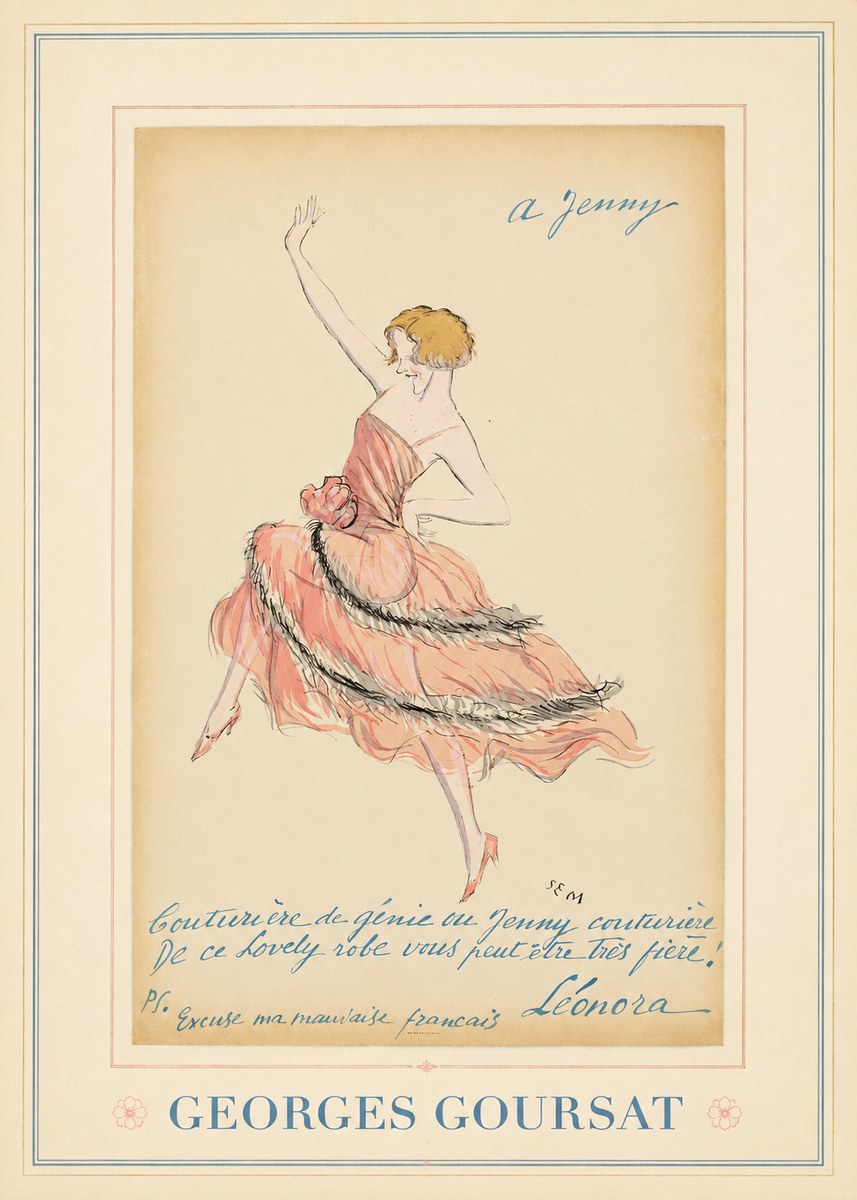 a Jenny
SEM
Couturière de génie ou Jenny couturière
De ce Lovely robe vous peut être très fière!
Léonora
PS. Excuse ma mauvaise francais
GEORGES GOURSAT